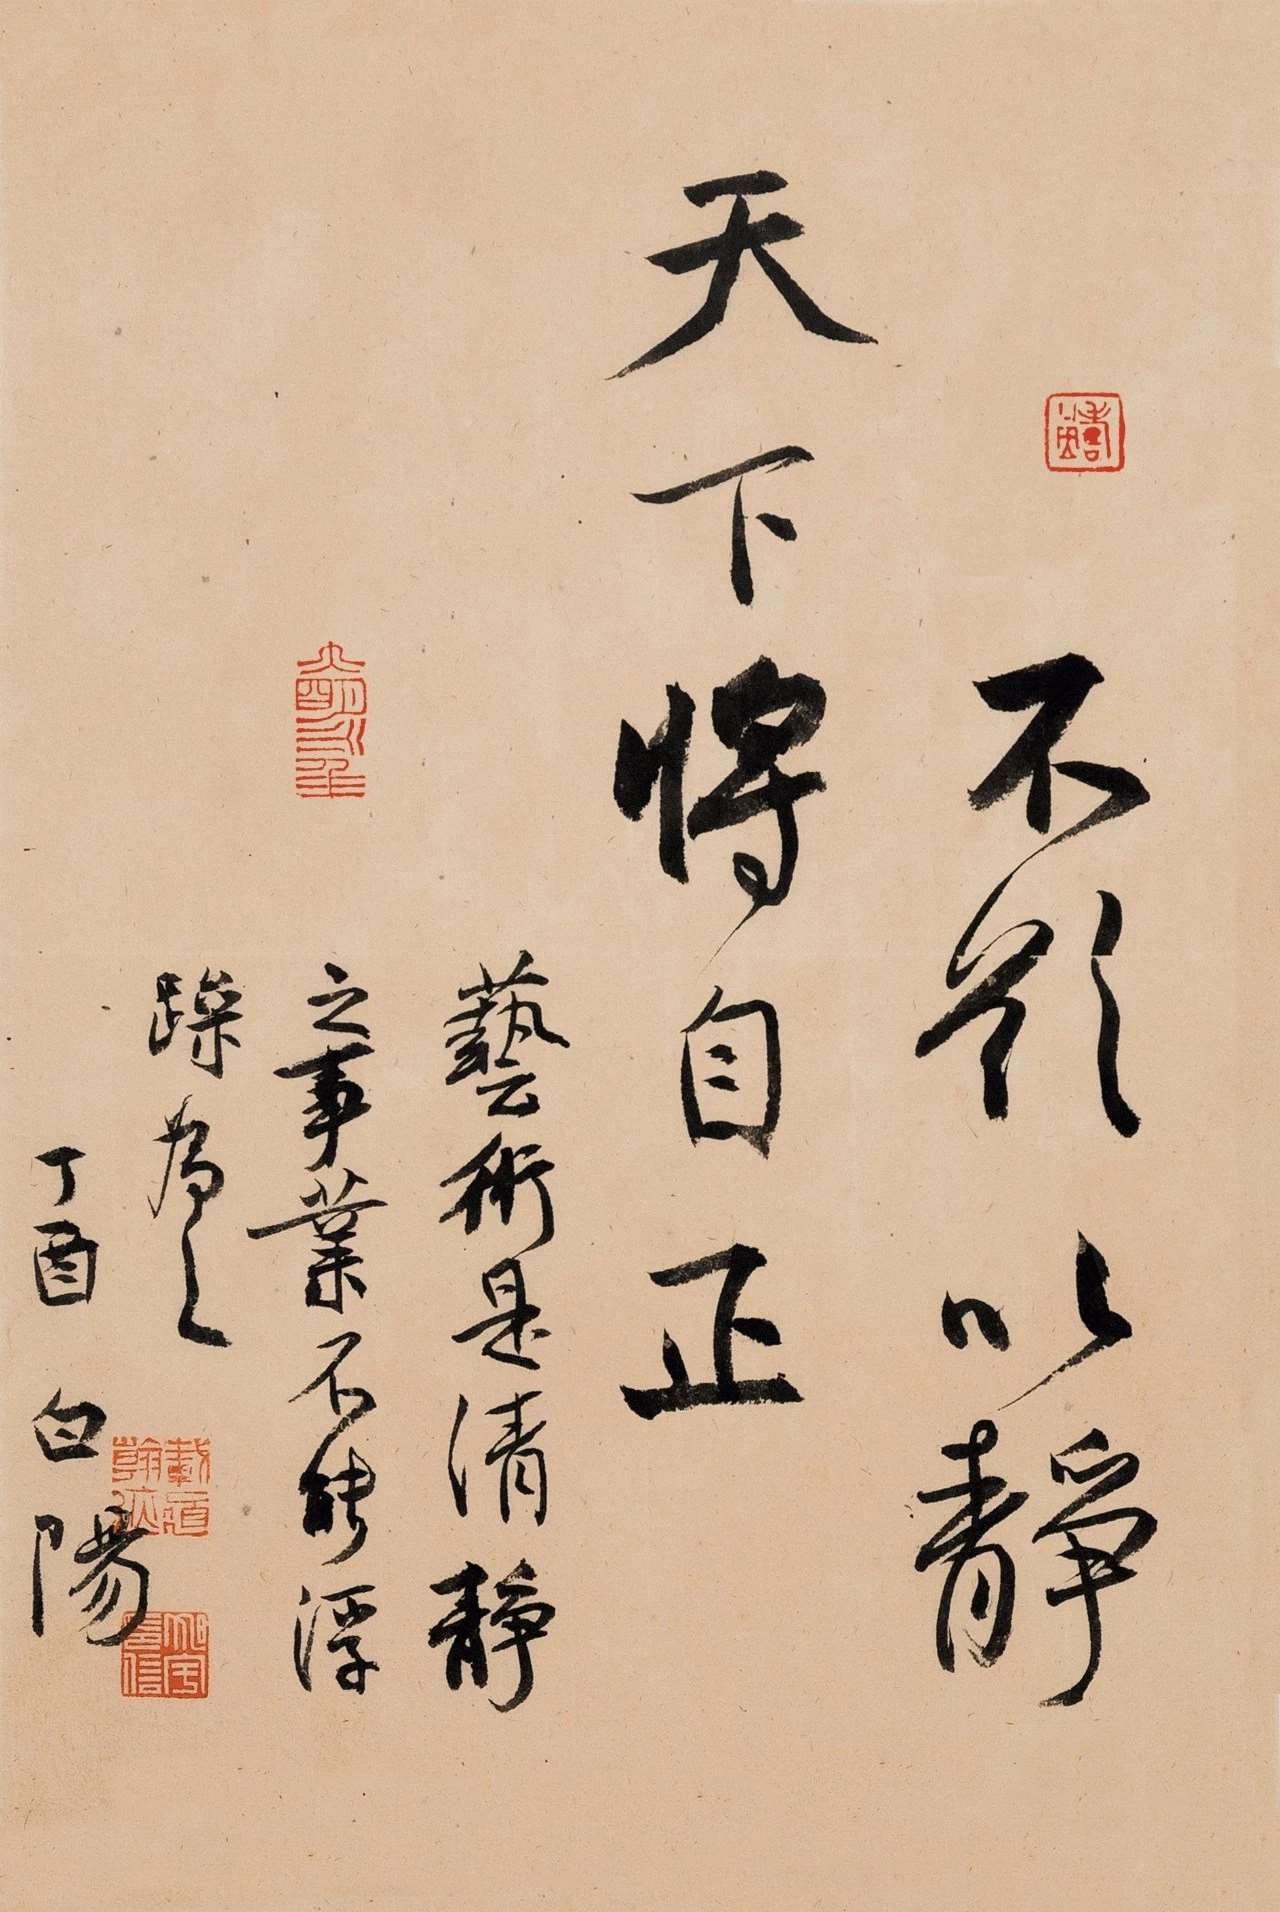 不欲以静
天下将自正
藝術是清静
之事業不能浮
躁為之
丁酉 白陽